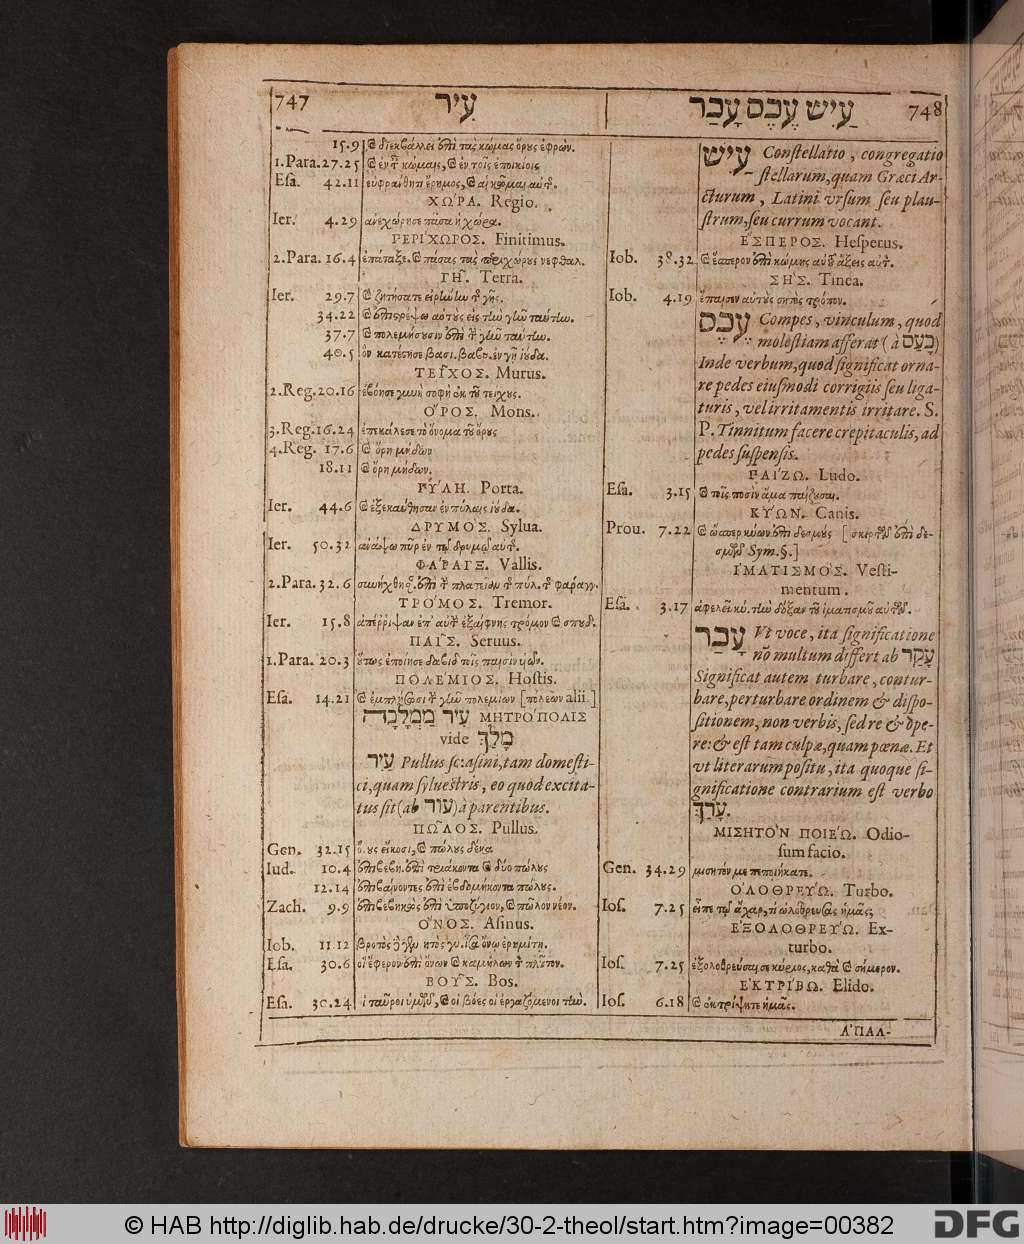 747 עִיר
15.9 διεκβάλλει ἐπὶ τὰς κώμας ὄρους ἐφρών.
1.Para.27.25 ἐν τ κώμαις, ἐν τοῖς ἐποικίοις
Esa. 42.11 εὐφράνθητι ἔρημος, αἱ κῶμαι αὐτ.
ΧΩ΄ΡΑ. Regio.
Ier. 4.29 ἀνεχώρησε πᾶσα ἡ χώρα.
ΠΕΡΙ΄ΧΩΡΟΣ. Finitimus.
2.Para. 16.4 ἐπάταξε. πάσας τὰς περιχώρους νεφθαλ.
ΓΗ͂. Terra.
Ier. 29.7 ζητήσατε εἰρήνην τ γῆς.
34.22 ἐπιστρέψω αὐτους εἰς τὴν γῆν ταύτην.
37.7 πολεμήσουσιν ἐπὶ τ γῆν ταύτην.
40.5 ὃν κατέστησε βασι. βαβυ. ἐν γῇ ἰούδα.
ΤΕΙ͂ΧΟΣ. Murus.
2.Reg.20.16 ἐβόησε γυνὴ σοφὴ ἐκ τοῦ τείχους.
Ο῎ΡΟΣ. Mons.
3.Reg.16.24 ἐπεκάλεσε τὸ ὄνομα τοῦ ὄρους
4.Reg. 17.6 ὄρη μήδων
18.11 ὄρη μήδων.
ΠΥ΄ΛΗ. Porta.
Ier. 44.6 ἐξεκαύθησαν ἐν πύλαις ἰούδα.
ΔΡΥΜΟ΄Σ. Sylua.
Ier. 50.32 ἀνάψω πῦρ ἐν τῷ δρυμῷ αὐτ.
ΦΑ΄ΡΑΓΞ. Vallis.
2.Para. 32.6 συνήχθη. ἐπὶ τ πλατεῖαν τ πύλ. τ φαράγγ.
ΤΡΟ΄ΜΟΣ. Tremor.
Ier. 15.8 ἀπέῤῥιψαν ἐπ' αὐτ ἐξαίφνης τρόμον σπουδ.
ΠΑΙ͂Σ. Seruus.
1.Para. 20.3 οὕτως ἐποίησε δαβὶδ τοῖς παισὶν
ΠΟΛΕ΄ΜΙΟΣ. Hostis.
Esa. 14.21 ἐμπλήσωσι τ γῆν πολεμίων [πόλεων alii.]
עִיר מַמְלָכָה ΜΗΤΡΟ΄ΠΟΛΙΣ
vide מָלַךְ
עַיִר Pullus sc: asini, tam domesti-
ci, quam syluestris, eo quod excita-
tus sit (ab עוּר) à parentibus.
ΠΩ͂ΛΟΣ. Pullus.
Gen. 32.15 ὄνους εἴκοσι, πώλους δέκα
Iud. 10.4 ἐπιβεβη. ἐπὶ τριάκοντα δύο πώλους
12.14 ἐπιβαίνοντες ἐπὶ ἑβδομήκοντα πώλους.
Zach. 9.9 ἐπιβεβηκὼς ἐπὶ ὑποζύγιον, πῶλον νέον.
Ο῎ΝΟΣ. Asinus.
Iob. 11.12 βροτὸς ἴσα ὄνῳ ἐρημίτῃ.
Esa. 30.6 οἳ ἔφερον ἐπὶ ὄνων καμήλων τ πλοῦτον.
ΒΟΥ͂Σ. Bos.
Esa. 30.24 οἱ ταῦροι ὑμῶν, οἱ βόες οἱ ἐργαζόμενοι τὴν.
עַיִשׁ עֶכֶס עָכַר 748
עַיִשׁ Constellatio, congregatio
stellarum, quam Græci Ar-
cturum, Latini vrsum seu plau-
strum, seu currum vocant.
Ε῞ΣΠΕΡΟΣ. Hesperus.
Iob. 38.32 ἕσπερον ἐπὶ κώμης αὐτοῦ ἄξεις αὐτ.
ΣΗ΄Σ. Tinea.
Iob. 4.19 ἔπαισεν αὐτοὺς σητὸς τρόπον.
עֶכֶס Compes, vinculum, quod
molestiam afferat (à כַּעַס)
Inde verbum, quod significat orna-
re pedes eiusmodi corrigiis seu liga-
turis, vel irritamentis irritare. S.
P. Tinnitum facere crepitaculis, ad
pedes suspensis.
ΠΑΙ΄ΖΩ. Ludo.
Esa. 3.15 τοῖς ποσὶν ἅμα παίζουσαι.
ΚΥ΄ΩΝ. Canis.
Prou. 7.22 ὥσπερ κύων ἐπὶ δεσμούς [σκιρτῶν ἐπὶ δε-
σμῶν Sym. §.]
Ι῾ΜΑΤΙΣΜΟ΄Σ. Vesti-
mentum.
Esa. 3.17 ἀφελεῖ κύ. τὴν δόξαν τοῦ ἱματισμοῦ αὐτῶν.
עָכַר Vt voce, ita significatione
nō multum differt ab עָקַר
Significat autem turbare, contur-
bare, perturbare ordinem & dispo-
sitionem, non verbis, sed re & ope-
re: & est tam culpæ, quam pœnæ. Et
vt literarum positu, ita quoque si-
gnificatione contrarium est verbo
עָרַךְ.
ΜΙΣΗΤΟ`Ν ΠΟΙΕ΄Ω. Odio-
sum facio.
Gen. 34.29 μισητόν με πεποιήκατε.
Ο᾿ΛΟΘΡΕΥ΄Ω. Turbo.
Ios. 7.25 εἶπε τῷ ἄχαρ, τί ὠλόθρευσας ἡμᾶς;
Ε᾿ΞΟΛΟΘΡΕΥ΄Ω. Ex-
turbo.
Ios. 7.25 ἐξολοθρεύσαι σε κύριος, καθὰ σήμερον.
Ε᾿ΚΤΡΙ΄ΒΩ. Elido.
Ios. 6.18 ἐκτρίψητε ἡμᾶς.
Α᾿ΠΑΛ-
© HAB http://diglib.hab.de/drucke/30-2-theol/start.htm?image=00382
DFG